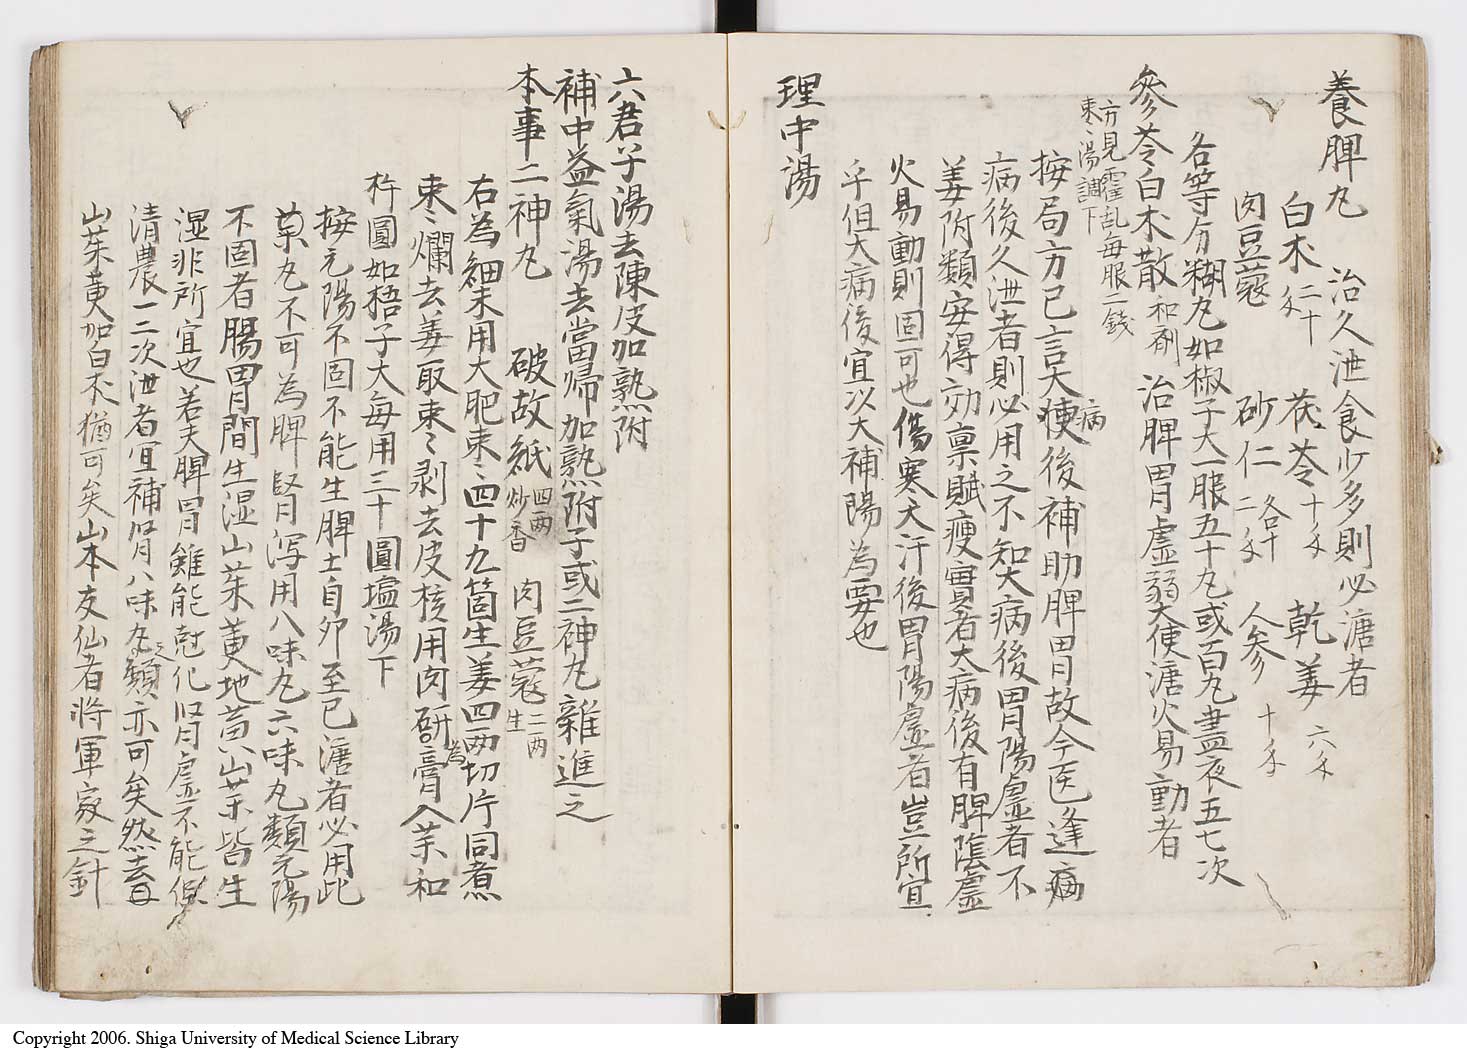 養脾丸　治久泄食少多則必溏者
白朮二十　茯苓十　乾姜六
肉豆蔻　砂仁各十二　人参十
各等分糊丸如椒子大一服五十丸或百丸晝夜五七次
參苓白朮散和剤　治脾胃虚弱大便溏火易動者
方見霍乱毎服二錢
棗〻湯調下
按局方已言大病後補助脾胃故今医逢病
病後久泄者則必用之不知大病後胃陽虚者不
姜附類安得効禀賦瘦實者大病後有脾陰虚
火易動則固可也傷寒大汗後胃陽虚者豈所宜
乎但大病後宜以大補陽為要也
理中湯
六君子湯去陳皮加熟附
補中益氣湯去當帰加熟附子或二神丸雜進之
本事二神丸　破故紙四両炒香　肉豆蔻二両生
右為細末用大肥棗〻四十九箇生姜四両切片同煮
棗〻爛去姜取棗〻剥去皮核用肉研為膏入末和
杵圓如梧子大毎用三十圓塩湯下
按元陽不固不能生脾土自卯至巳溏者必用此
菓丸不可為脾腎瀉用八味丸六味丸類元陽
不固者腸胃間生湿山茱萸地黄山茱皆生
湿非所宜也若夫脾胃雖能尅化腎虚不能
清農一二次泄者宜補腎八味丸之類亦可矣然去
山茱萸加白朮猶可矣山本友仙者将軍家之針